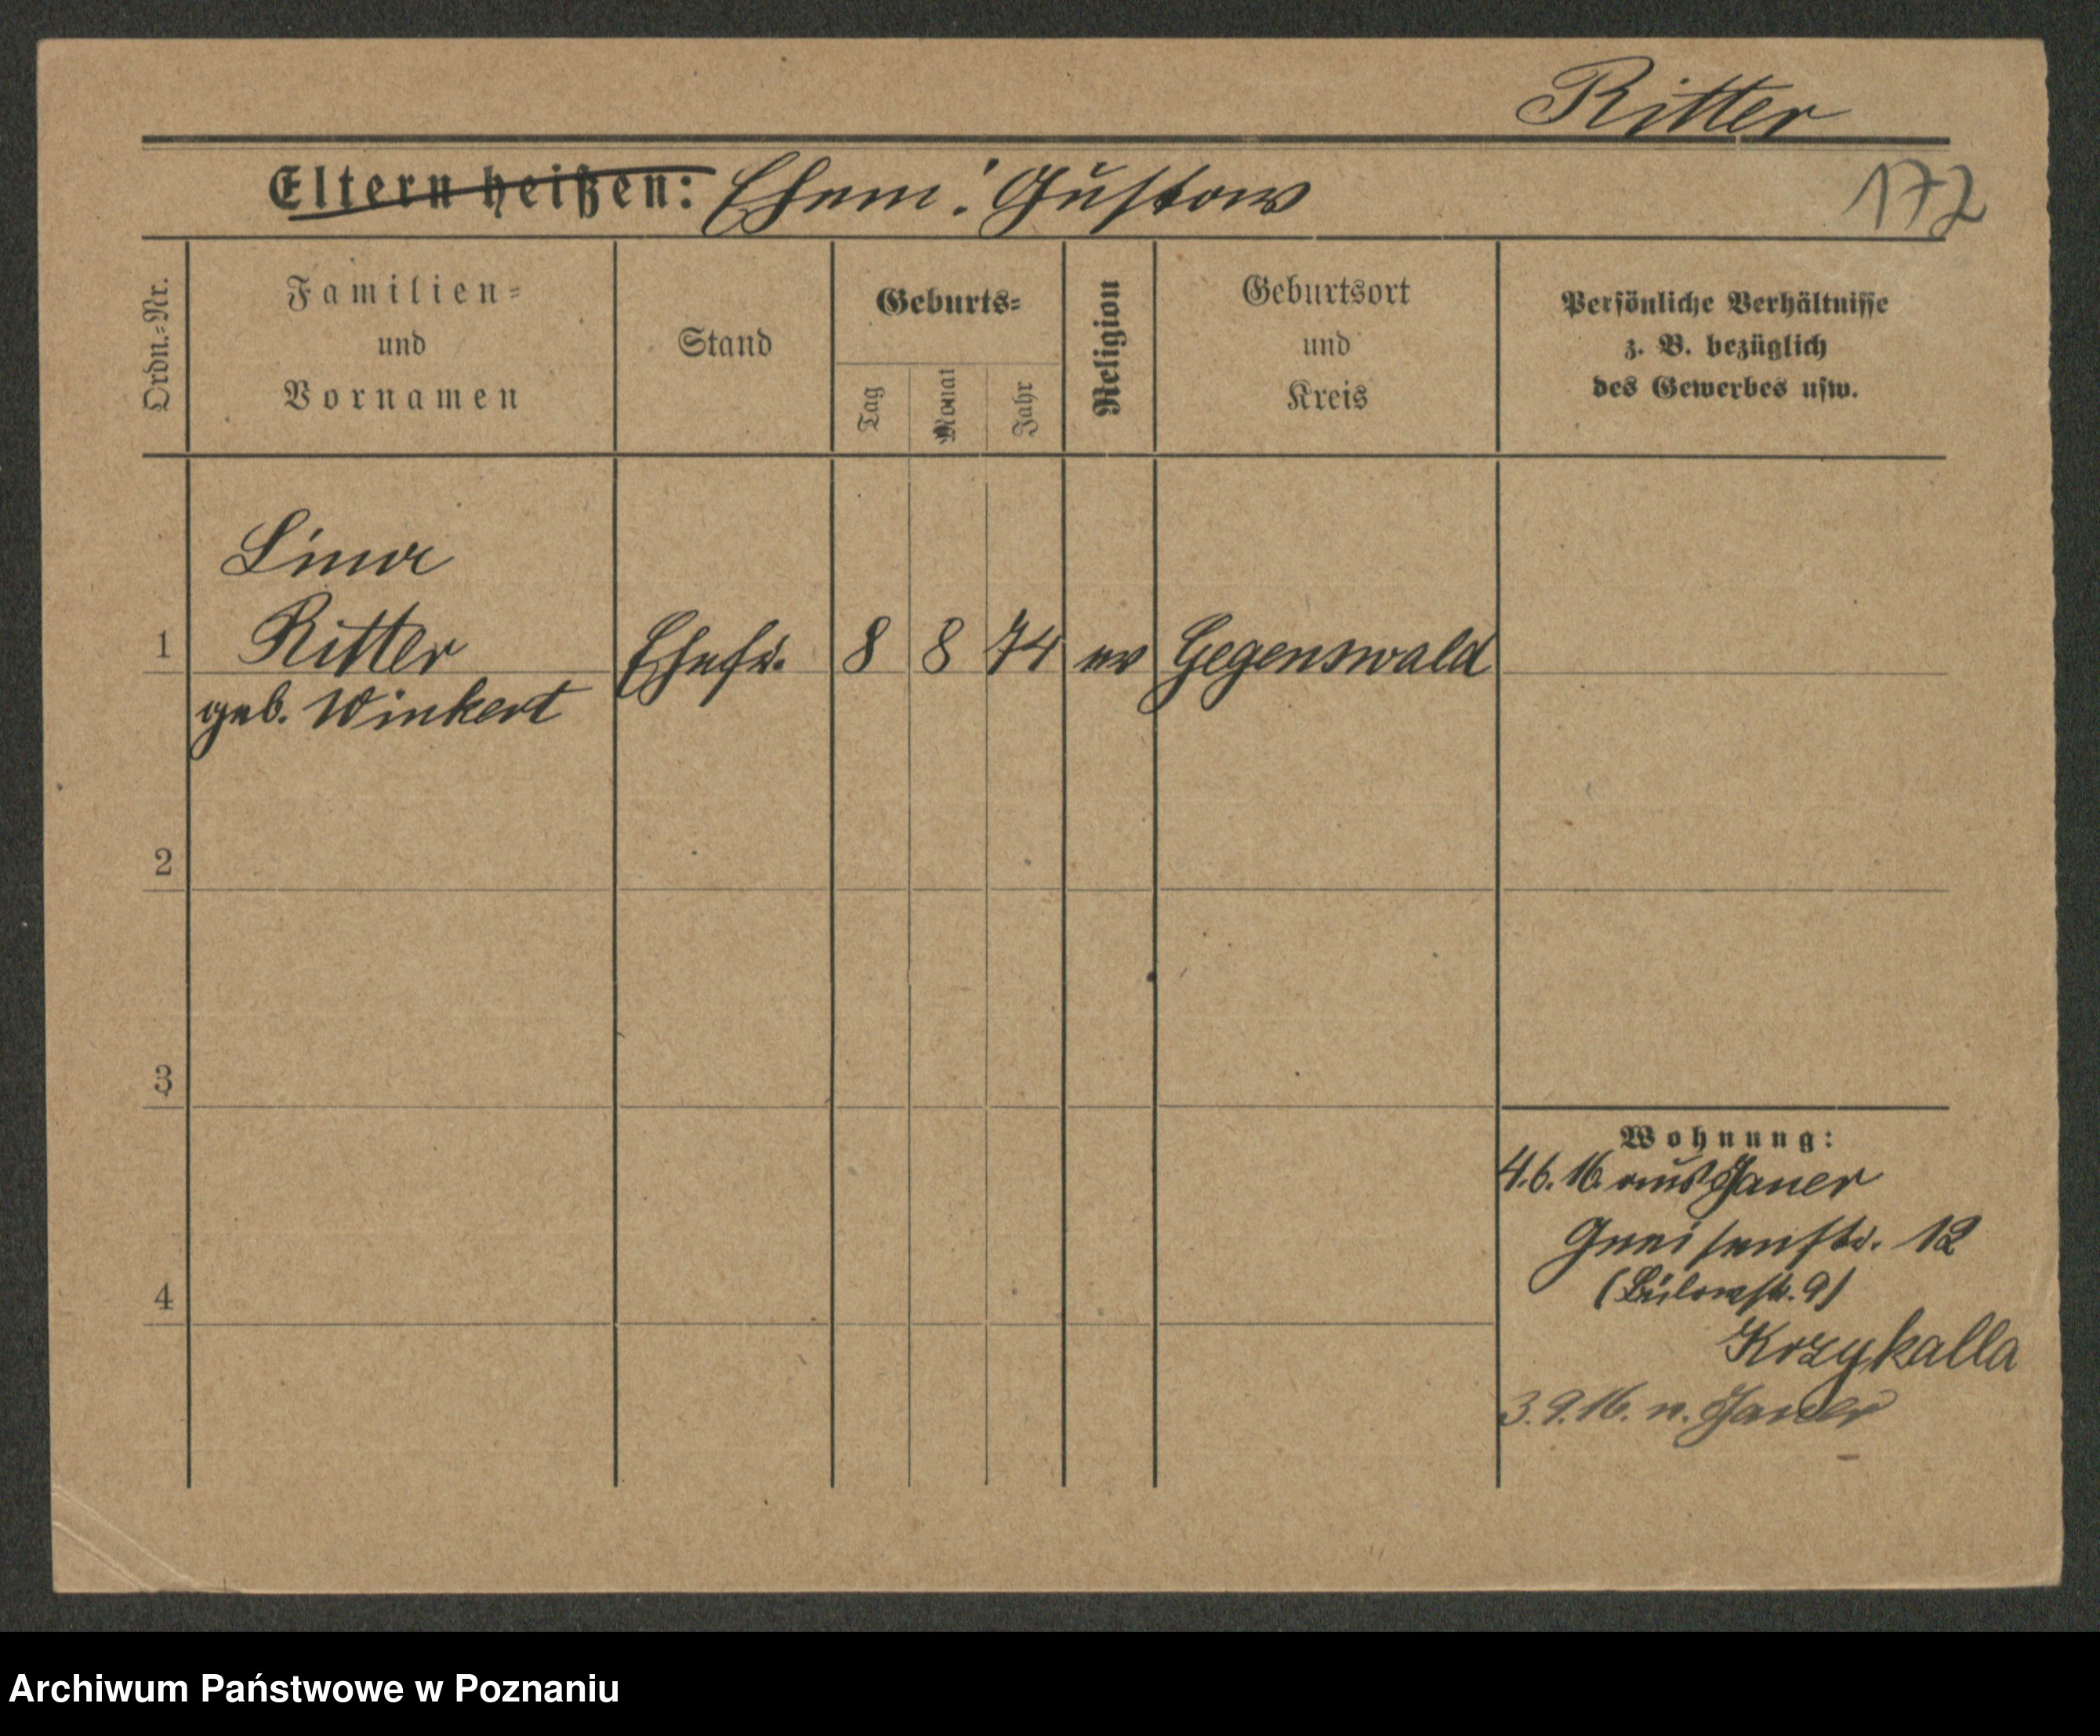 Ritter
Eltern heißen: Ehem: Gustav
172
Ordn.=Nr.
Familien=
und
Vornamen
Stand
Geburts=
Tag
Monat
Jahr
Religion
Geburtsort
und
Kreis
Persönliche Verhältnisse
z. B. bezüglich
des Gewerbes usw.
Lina
1 Ritter Ehefr. 8 8 74 ev Gegenswald
geb. Winkert
2
3
4
Wohnung:
4.6.16. aus Janer
Gneisenstr. 12
(Bülowstr. 9)
Krzykalla
3.9.16. n. Janer
Archiwum Państwowe w Poznaniu